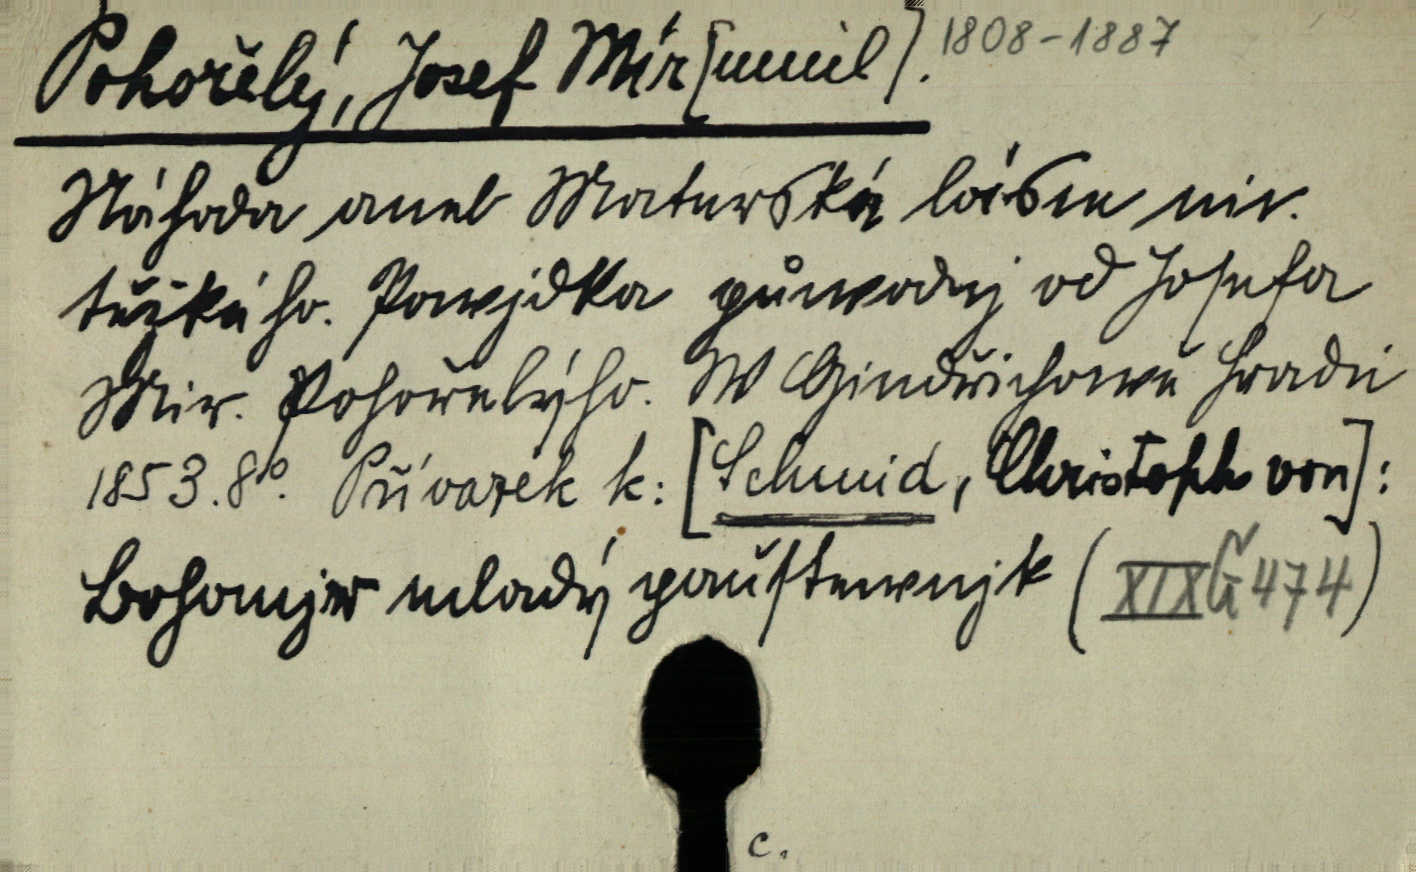 Pohořelý, Josef Mir[umil]. 1808-1887
Náhoda aneb Mateřská láska nic
těžkého. Powjdka půwodnj od Josefa
Mir. Pohořelýho. W Gindřichowě Hradci
1853. 8°. Přívazek k: [Schmid, Christoph von]:
Bohomjr mladý paustewnjk (XIX G 474)
c.